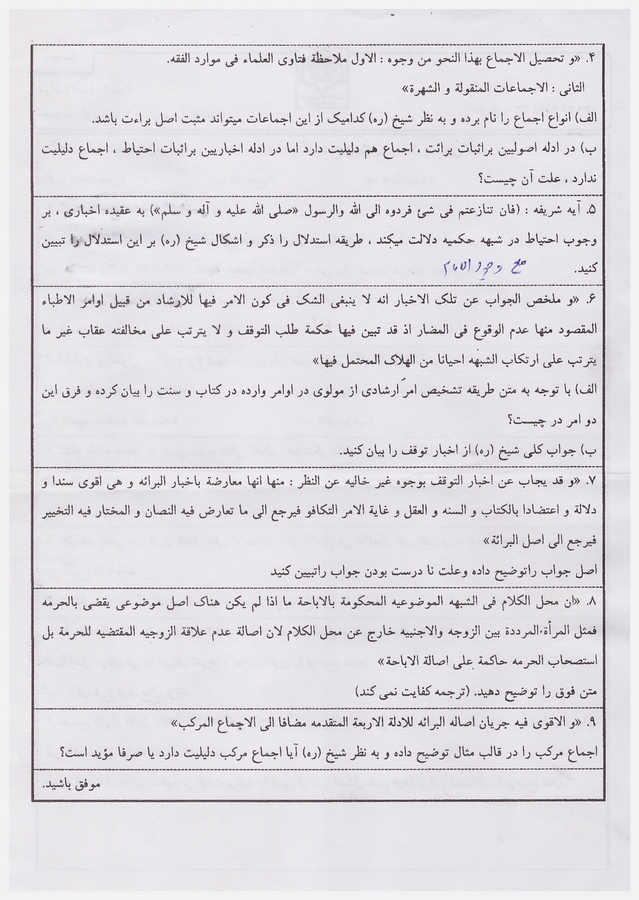 ۴. «و تحصیل الاجماع بهذا النحو من وجوه : الاول ملاحظة فتاوی العلماء فی موارد الفقه.
الثانی : الاجماعات المنقولة و الشهرة»
الف) انواع اجماع را نام برده و به نظر شیخ (ره) کدامیک از این اجماعات میتواند مثبت اصل براءت باشد.
ب) در ادله اصولیین براثبات برائت ، اجماع هم دلیلیت دارد اما در ادله اخباریین براثبات احتیاط ، اجماع دلیلیت
ندارد ، علت آن چیست؟
۵. آیه شریفه : (فان تنازعتم فی شئ فردوه الی الله والرسول «صلی الله علیه و آله و سلم») به عقیده اخباری ، بر
وجوب احتیاط در شبهه حکمیه دلالت میکند ، طریقه استدلال را ذکر و اشکال شیخ (ره) بر این استدلال را تبیین
کنید.
۶. «و ملخص الجواب عن تلک الاخبار انه لا ینبغی الشک فی کون الامر فیها للارشاد من قبیل اوامر الاطباء
المقصود منها عدم الوقوع فی المضار اذ قد تبین فیها حکمة طلب التوقف و لا یترتب علی مخالفته عقاب غیر ما
یترتب علی ارتکاب الشبهه احیانا من الهلاک المحتمل فیها»
الف) با توجه به متن طریقه تشخیص امر ارشادی از مولوی در اوامر وارده در کتاب و سنت را بیان کرده و فرق این
دو امر در چیست؟
ب) جواب کلی شیخ (ره) از اخبار توقف را بیان کنید.
۷. «و قد یجاب عن اخبار التوقف بوجوه غیر خالیه عن النظر : منها انها معارضة باخبار البرائه و هی اقوی سندا و
دلالة و اعتضادا بالکتاب و السنه و العقل و غایة الامر التکافو فیرجع الی ما تعارض فیه النصان و المختار فیه التخییر
فیرجع الی اصل البرائة»
اصل جواب راتوضیح داده وعلت نا درست بودن جواب راتبیین کنید
۸. «ان محل الکلام فی الشبهه الموضوعیه المحکومة بالاباحة ما اذا لم یکن هناک اصل موضوعی یقضی بالحرمه
فمثل المرأة المرددة بین الزوجه والاجنبیه خارج عن محل الکلام لان اصالة عدم علاقة الزوجیه المقتضیه للحرمة بل
استصحاب الحرمه حاکمة علی اصالة الاباحة»
متن فوق را توضیح دهید. (ترجمه کفایت نمی کند)
۹. «و الاقوی فیه جریان اصاله البرائه للادلة الاربعة المتقدمه مضافا الی الاجماع المرکب»
اجماع مرکب را در قالب مثال توضیح داده و به نظر شیخ (ره) آیا اجماع مرکب دلیلیت دارد یا صرفا مؤید است؟
موفق باشید.